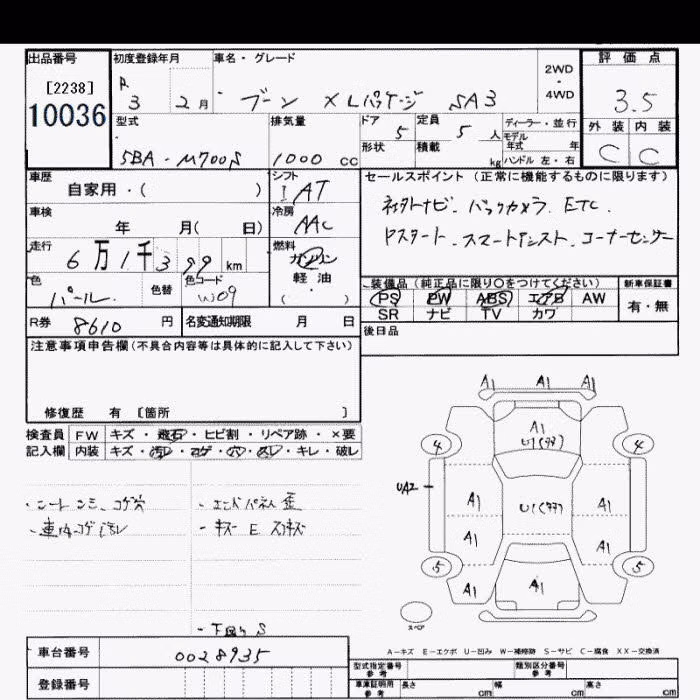 出品番号 初度登録年月 車名・グレード 評価点
[2238] R 3 2月 ブーン X Lパッケージ SA3 2WD・4WD 3.5
10036 型式 排気量 ドア 5 定員 5人 ディーラー・並行 外装 内装
5BA-M700S 1000 cc 形状 積載 kg モデル年式 年 ハンドル 左・右 C C
車歴 自家用・( ) シフト IAT セールスポイント (正常に機能するものに限ります)
車検 年 月( 日) 冷房 AAC 社外ナビ. バックカメラ. ETC.
走行 6万1千399km 燃料 ガソリン Pスタート.スマートアシスト.コーナーセンサー
色 パール. 色替 色コード W09 軽・油 ( )
装備品 (純正品に限り○をつけてください) 新車保証書
PS PW ABS エアB AW 有・無
SR ナビ TV カワ
R券 8610円 名変通知期限 月 日 後日品
注意事項申告欄 (不具合内容等は具体的に記入して下さい)
修復歴 有 [箇所 ]
検査員 FW キズ・飛石・ヒビ割・リペア跡・×要
記入欄 内装 キズ・汚レ・コゲ・穴・スレ・キレ・破レ
A1 A1 A1
A1
U1(99)
4 4
UA2
A1 U1(99) A1
A1 A1
5 5
A1 A1 A1
スペア
・シートシミ.コゲ穴 ・エンドパネル歪
・車内コゲ汚レ ・キズ E スリキズ
・下回りS
A−キズ E−エクボ U−凹み W−補修跡 S−サビ C−腐食 XX−交換済
車台番号 0028935
登録番号
型式指定番号 参考 類別区分番号 参考
車庫証明用 参考 長さ cm 幅 cm 高さ cm